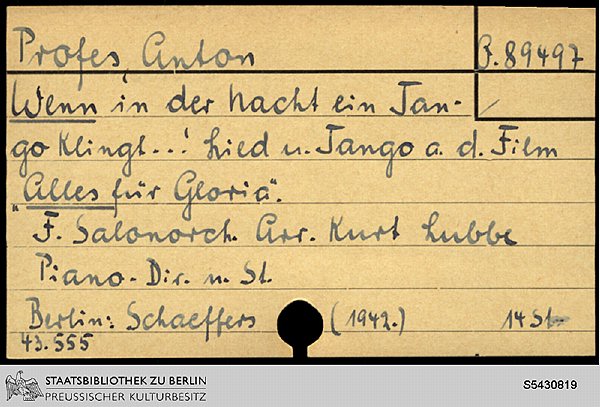 Profes, Anton
B. 89497
Wenn in der Nacht ein Tan-
go klingt...! Lied u. Tango a. d. Film
„Alles für Gloria“.
F. Salonorch. Arr. Kurt Lubbe
Piano-Dir. u. St.
Berlin: Schaeffers (1942.) 14 St
43.555
STAATSBIBLIOTHEK ZU BERLIN
PREUSSISCHER KULTURBESITZ
S5430819